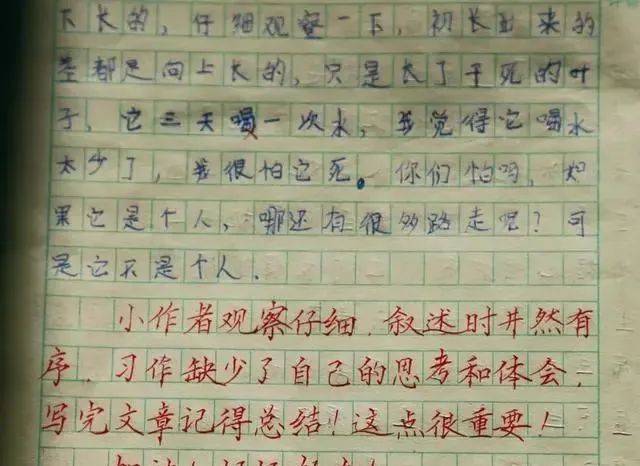 下长的，仔细观察一下，初长出来的
茎都是向上长的，只是长了干死的叶
子，它三天喝一次水，我觉得它喝水
太少了，我很怕它死。你们怕吗，如
果它是个人，哪还有很多路走呢？可
是它不是个人．
小作者观察仔细．叙述时井然有
序．习作缺少了自己的思考和体会，
写完文章记得总结！这点很重要！